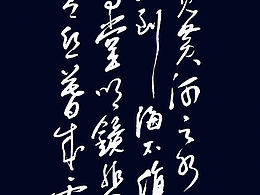 黄河之水
到海不復
高堂明鏡悲
丝暮成雪